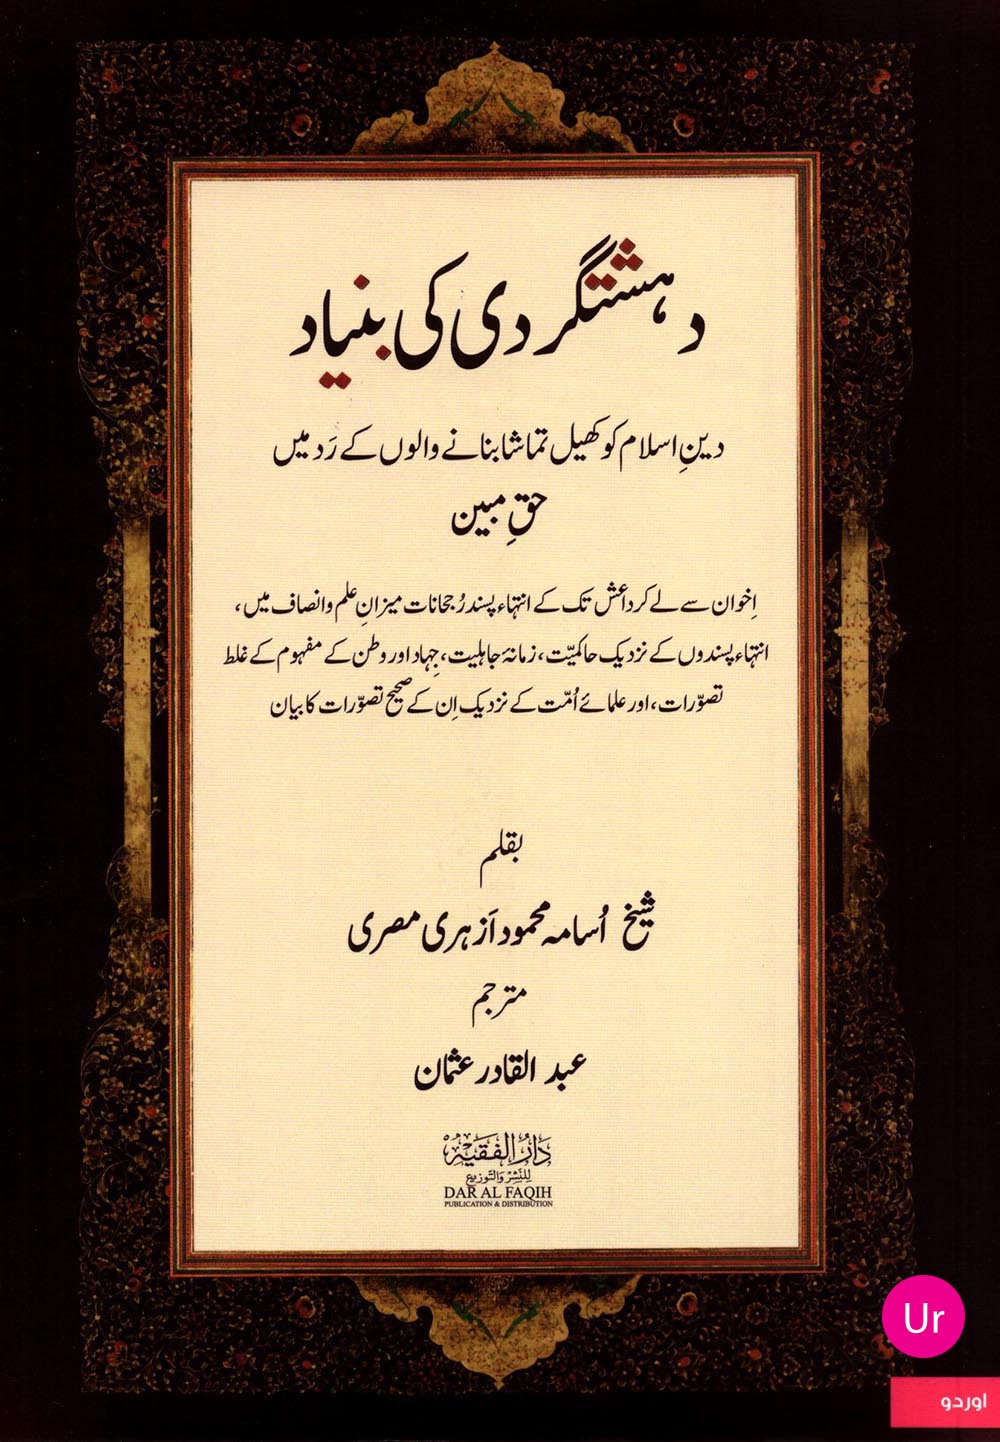 دہشتگردی کی بنیاد
دینِ اسلام کو کھیل تماشا بنانے والوں کے رَد میں
حقِ مبین
اِخوان سے لے کر داعش تک کے انتہاء پسند رُجحانات میزانِ علم وانصاف میں،
انتہاء پسندوں کے نزدیک حاکمیّت، زمانۂ جاہلیت، جِہاد اور وطن کے مفہوم کے غلط
تصوّرات، اور علمائے اُمّت کے نزدیک اِن کے صحیح تصوّرات کا بیان
بقلم
شیخ اُسامہ محمود اَزہری مصری
مترجم
عبد القادر عثمان
دَارُ الفَقِيْه
لِلنَّشْرِ وَالتَّوزِيع
DAR AL FAQIH
PUBLICATION & DISTRIBUTION
Ur
اوردو